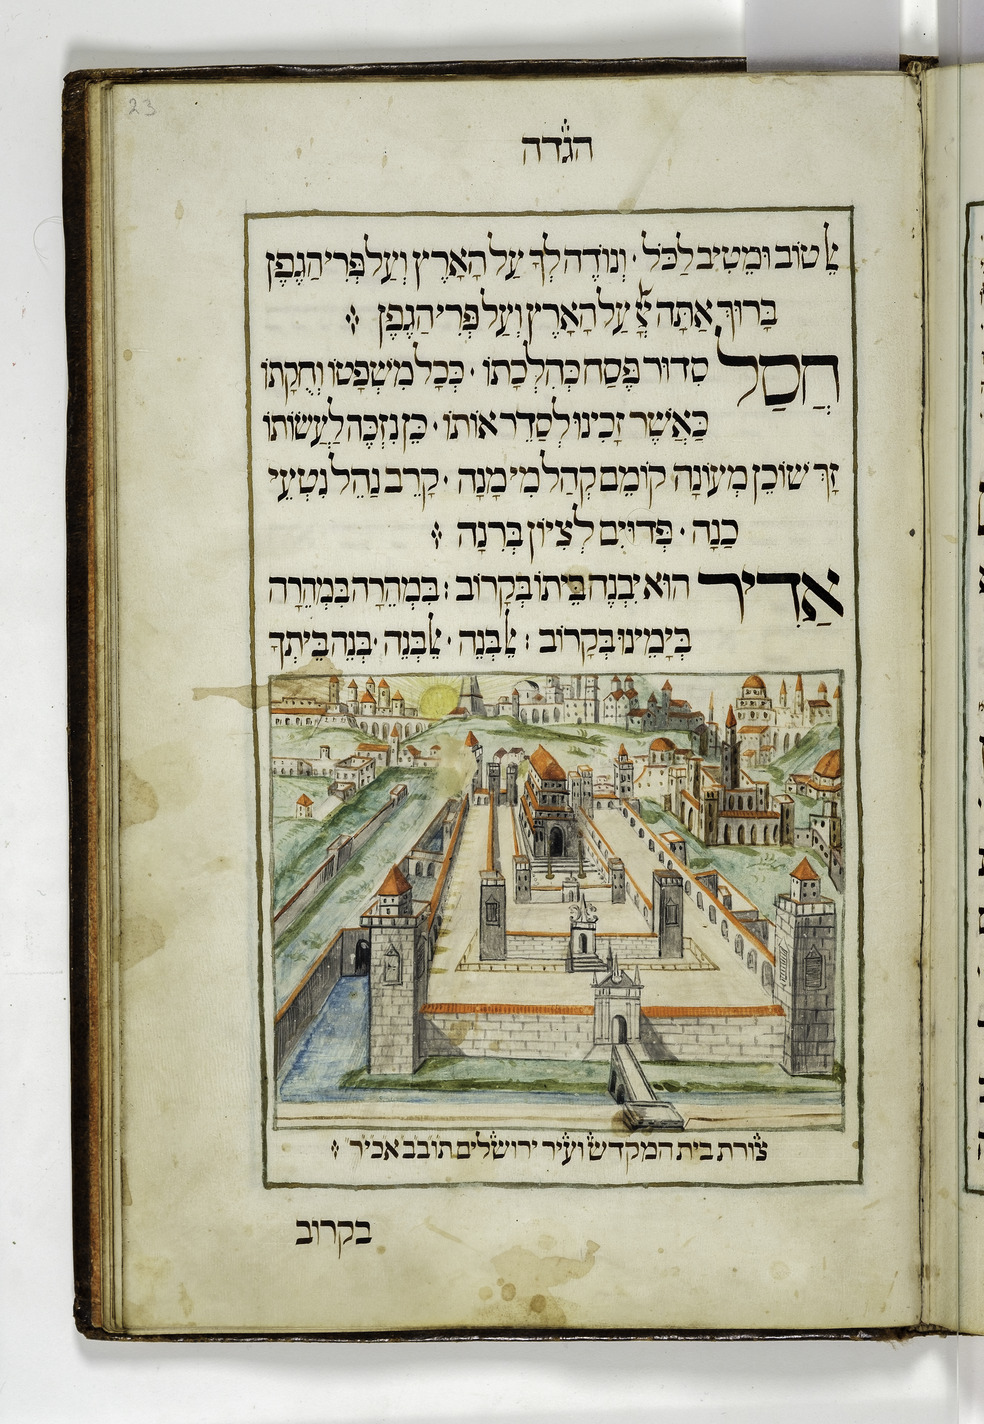 23
הגדה
אל טוֹב וּמֵטִיב לַכֹּל · וְנוֹדֶה לְךָ עַל הָאָרֶץ וְעַל פְּרִי הַגֶּפֶן
בָּרוּךְ אַתָּה יְיָ עַל הָאָרֶץ וְעַל פְּרִי הַגֶּפֶן
חֲסַל סִדּוּר פֶּסַח כְּהִלְכָתוֹ · כְּכָל מִשְׁפָּטוֹ וְחֻקָתוֹ
כַּאֲשֶׁר זָכִינוּ לְסַדֵּר אוֹתוֹ · כֵּן נִזְכֶּה לַעֲשׂוֹתוֹ
זָךְ שׁוֹכֵן מְעוֹנָה קוֹמֵם קְהַל מִי מָנָה · קָרֵב נַהֵל נִטְעֵי
כַנָּה · פְּדוּיִם לְצִיּוֹן בְּרִנָּה
אַדִּיר הוּא יִבְנֶה בֵּיתוֹ בְּקָרוֹב : בִּמְהֵרָה בִּמְהֵרָה
בְּיָמֵינוּ בְּקָרוֹב : אֵל בְּנֵה · אֵל בְּנֵה · בְּנֵה בֵּיתְךָ
צורת בית המקדש ועיר ירושלים תובב אכיר
בקרוב